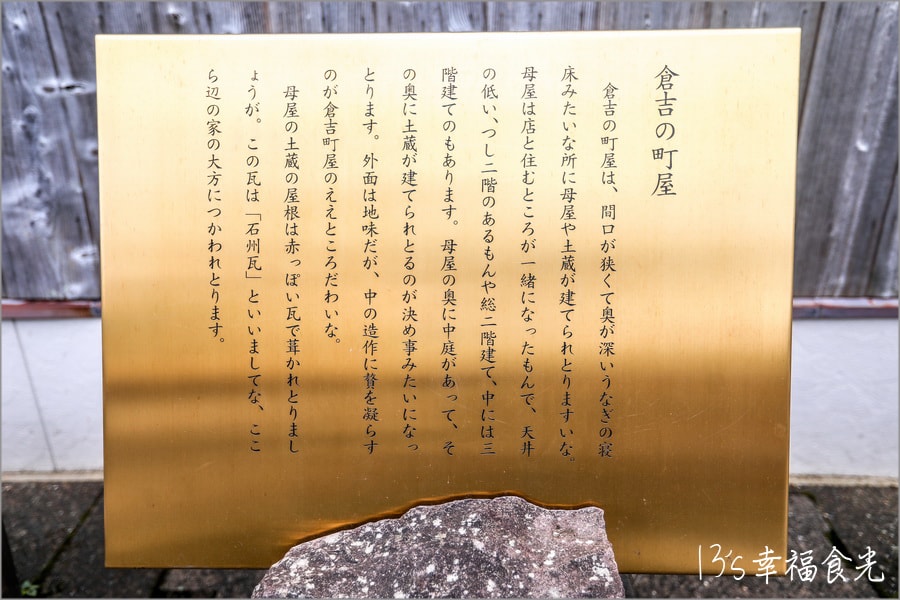 倉吉の町屋
倉吉の町屋は、間口が狭くて奥が深いうなぎの寝
床みたいな所に母屋や土蔵が建てられとりますいな。
母屋は店と住むところが一緒になったもんで、天井
の低い、つし二階のあるもんや総二階建て、中には三
階建てのもあります。母屋の奥に中庭があって、そ
の奥に土蔵が建てられとるのが決め事みたいになっ
とります。外面は地味だが、中の造作に贅を凝らす
のが倉吉町屋のええところだわいな。
母屋の土蔵の屋根は赤っぽい瓦で葺かれとりまし
ょうが。この瓦は「石州瓦」といいましてな、ここ
ら辺の家の大方につかわれとります。
13's幸福食光